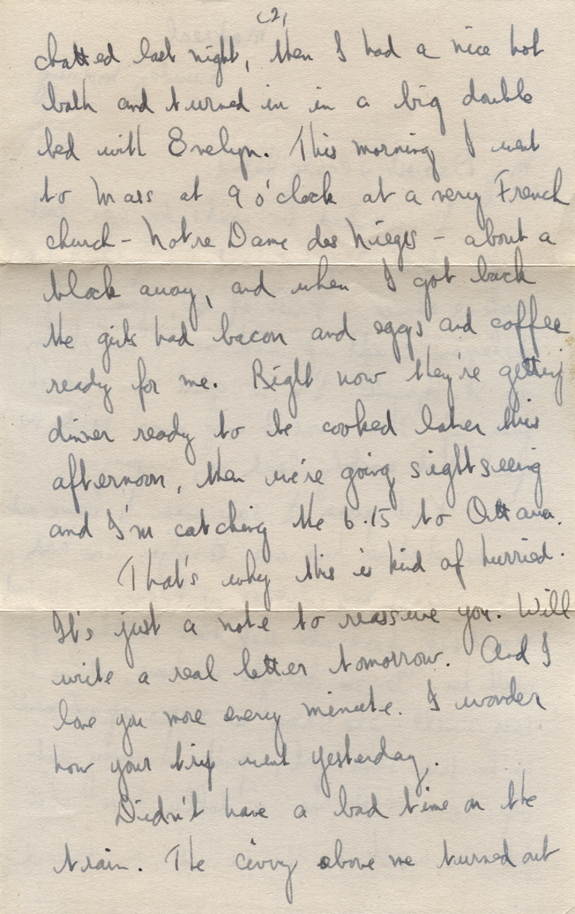 (2)
chatted last night, then I had a nice hot
bath and turned in in a big double
bed with Evelyn. This morning I went
to Mass at 9 o'clock at a very French
church - Notre Dame des Nieges - about a
block away, and when I got back
the girls had bacon and eggs and coffee
ready for me. Right now they're getting
dinner ready to be cooked later this
afternoon, then we're going sightseeing
and I'm catching the 6.15 to Ottawa.
That's why this is kind of hurried.
It's just a note to reassure you. Will
write a real letter tomorrow. And I
love you more every minute. I wonder
how your trip went yesterday.
Didn't have a bad time on the
train. The civvy above me turned out